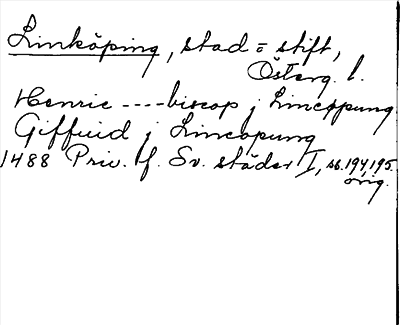 Linköping, stad = stift,
Österg. l.
Henric ----biscop j Lincopung
Giffuid j Lincopung
1488 Priv. f. Sv. städer I, ss. 194, 195.
orig.